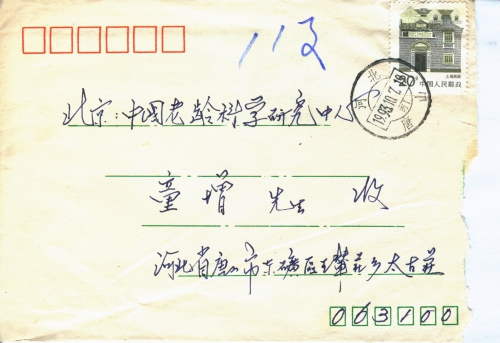 113
上海民居
20 中国人民邮政
河北
1993.10.7.
唐
北京:中国老龄科学研究中心
童增 先生 收
河北省唐山市东矿区王辇庄乡太古庄
063100